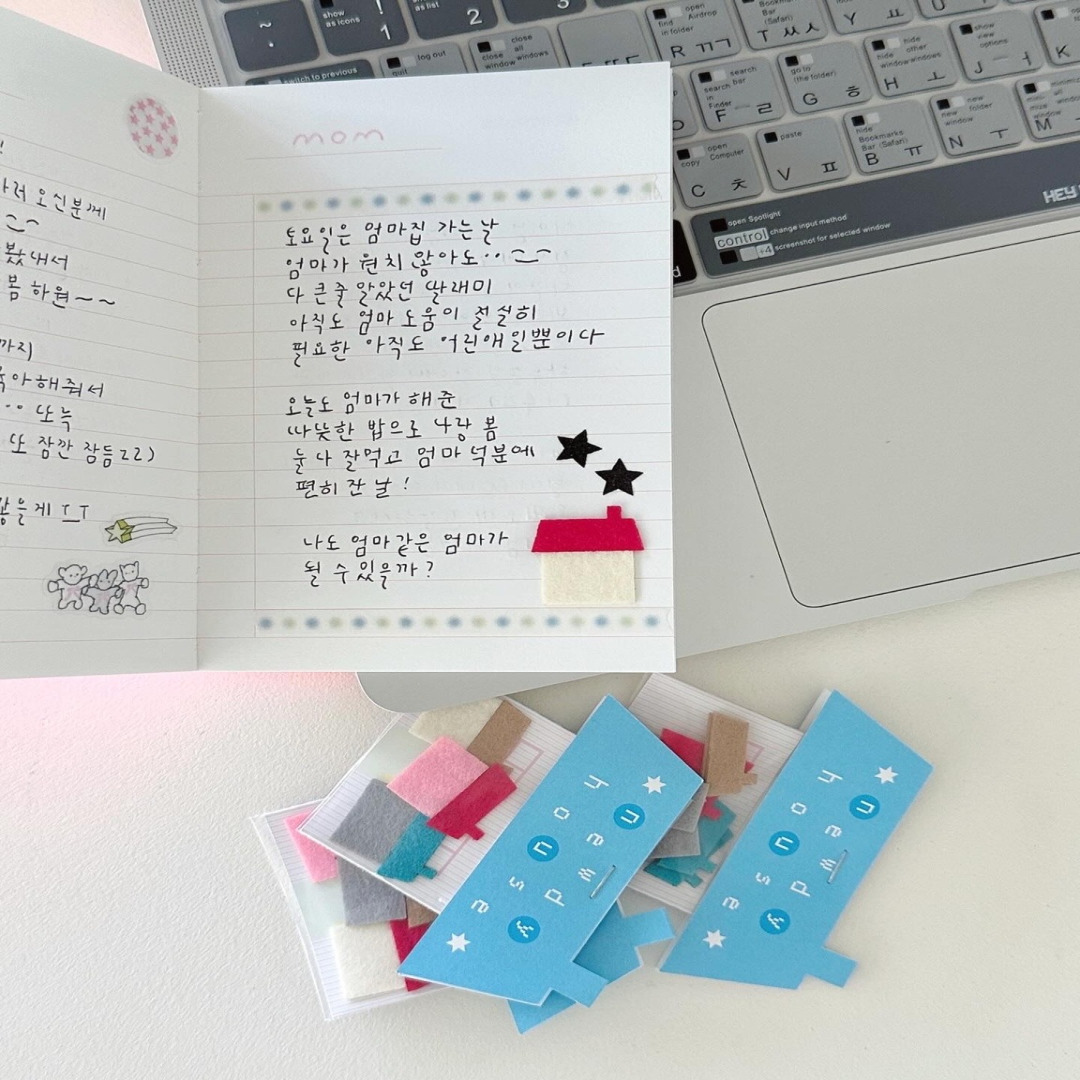 mom
토요일은 엄마집 가는날
엄마가 원치 않아도..
다 큰줄 알았던 딸래미
아직도 엄마 도움이 절실히
필요한 아직도 어린애일뿐이다
오늘도 엄마가 해준
따뜻한 밥으로 사랑 봄
눈나 잘먹고 엄마 덕분에
편히 잔 날!
나도 엄마같은 엄마가
될 수 있을까?
오신분께
봤대서
봄 하원~~
까지
육아해줘서
.. 또륵
또 잠깐 잠듬 ㄹㄹ)
않을게 ㅜㅜ
show as icons
as list
! 1
2
3
switch to previous
log out
quit
close all windows
close window
find in folder
open Airdrop
R ㄲㄱ
Bookmarks Bar (Safari)
T ㅆㅅ
Y ㅛ
U
search bar in Finder
search
F ㄹ
go to (the folder)
G ㅎ
hide other windows
hide windows
H ㅗ
show view options
J ㅓ
K
copy
open Computer
C ㅊ
paste
V ㅍ
hide Bookmarks Bar (Safari)
B ㅠ
new window
new folder
N ㅜ
M
HEY
open Spotlight
control change input method
+4 screenshot for selected window